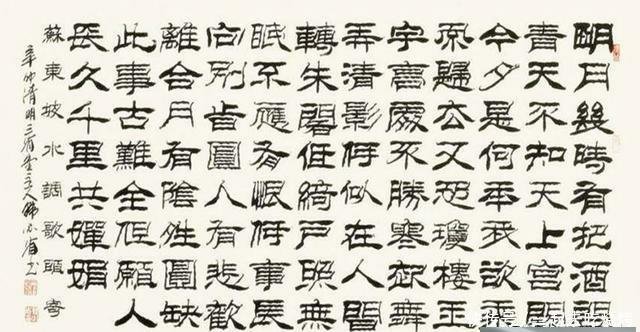 明月幾時有把酒問
青天不知天上宮闕
今夕是何年我欲乘
風歸去又恐瓊樓玉
宇高處不勝寒起舞
弄清影何似在人間
轉朱閣低綺戶照無
眠不應有恨何事長
向別旹圓人有悲歡
離合月有陰晴圓缺
此事古難全但願人
長久千里共嬋娟
蘇東坡水調歌頭寄
辛卯清明三省堂主人